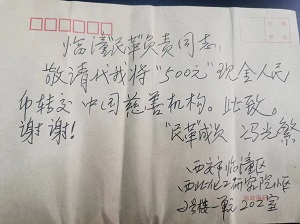 临潼民革负责同志:
敬请代我将“500元”现金人民
币转交中国慈善机构。此致。
谢谢!
“民革成员 冯光繁
西安市临潼区
西北化工研究院小区
2号楼一单元202室